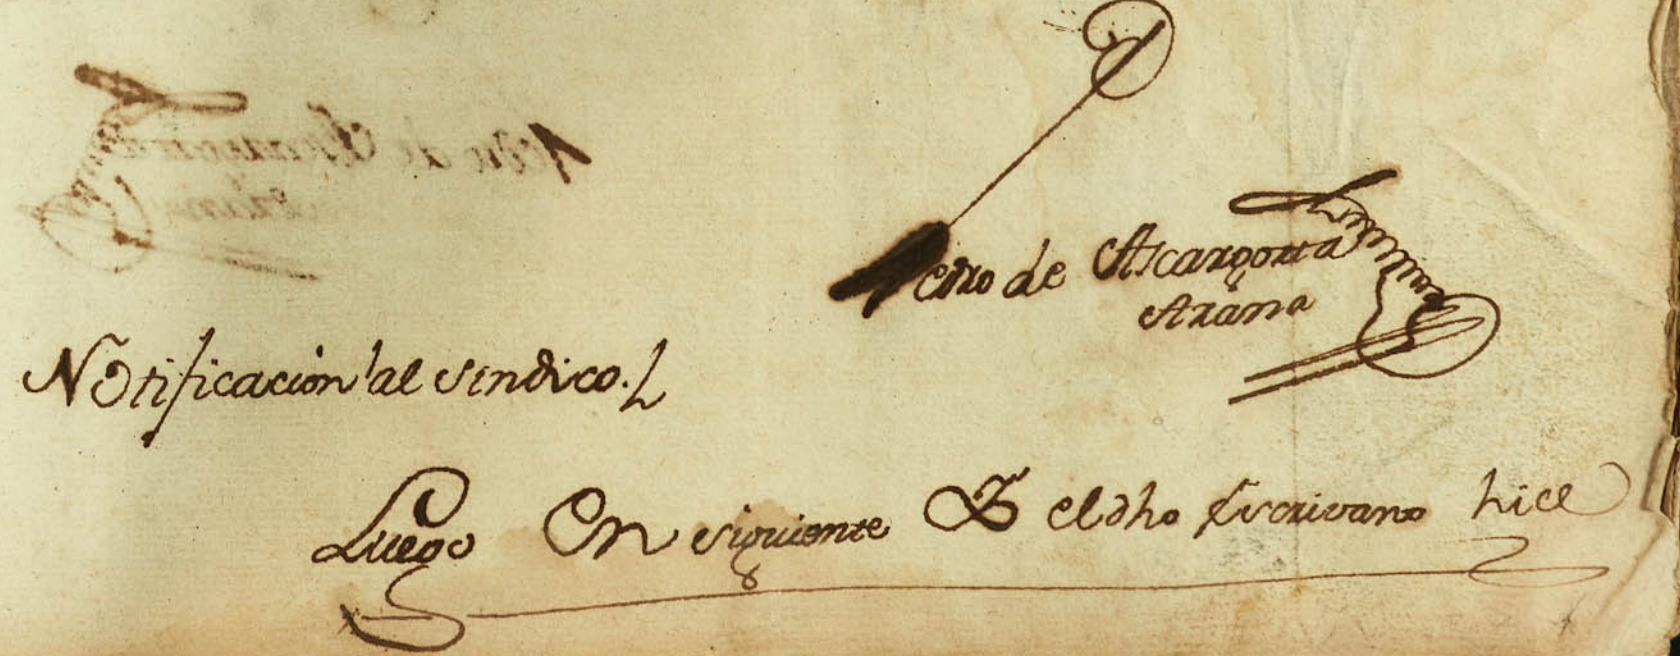 Pedro de Ascargorta
Arana
Notificación al sindico.
Luego En siguiente Yo el dho Escrivano hice